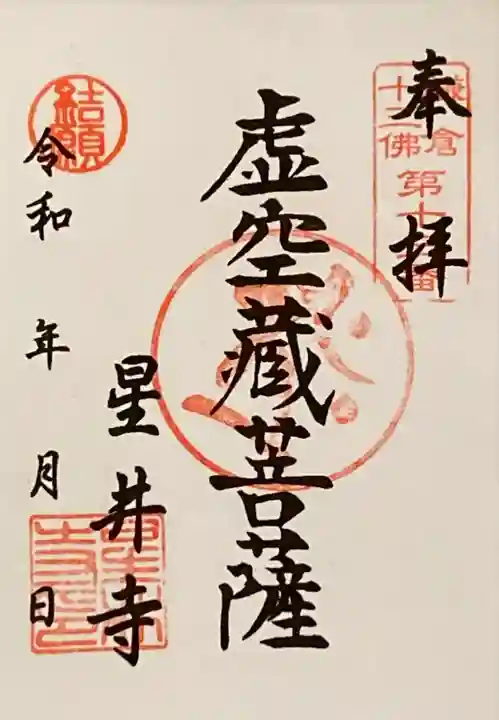 奉拝
鎌倉
十三佛
第十三番
虚空藏菩薩
星井寺
結願
令和 年 月 日